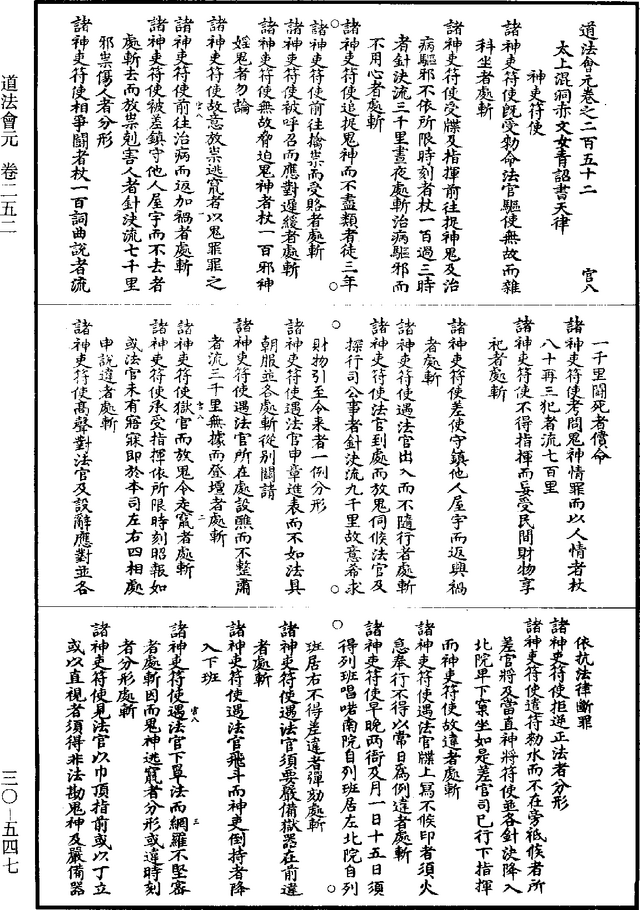 道法會元卷之二百五十二 官八
太上混洞赤文女青詔書天律
神吏符使
諸神吏符使既受勑命法官驅使無故而雜
科坐者處斬
諸神吏符使受牒及指揮前往捉神鬼及治
病驅邪不依所限時刻者杖一百過三時
者針決流三千里晝夜處斬治病驅邪而
不用心者處斬
諸神吏符使追捉鬼神而不盡類者徒三年
諸神吏符使前往擒祟而受賂者處斬
諸神吏符使被呼召而應對遲緩者處斬
諸神吏符使無故脅迫鬼神者杖一百邪神
婬鬼者勿論
諸神吏符使故意放祟逃竄者以鬼罪罪之
諸神吏符使前往治病而返加禍者處斬
諸神吏符使被差鎮守他人屋宇而不去者
處斬去而放祟剋害人者針決流七千里
邪祟傷人者分形
諸神吏符使相爭鬭者杖一百詞曲說者流
一千里鬭死者償命
諸神吏符使考問鬼神情罪而以人情者杖
八十再三犯者流七百里
諸神吏符使不得指揮而妄受民間財物享
祀者處斬
諸神吏符使差使守鎮他人屋宇而返興禍
者處斬
諸神吏符使遇法官出入而不隨行者處斬
諸神吏符使法官到處而放鬼伺候法官及
探行司公事者針決流九千里故意希求
財物引至令來者一例分形
諸神吏符使遇法官申章進表而不如法具
朝服並各處斬從別關請
諸神吏符使遇法官所在處設醮而不整肅
者流三千里無據而登壇者處斬
諸神吏符使獄官而放鬼令走竄者處斬
諸神吏符使承受指揮依所限時刻照報如
或法官未有寤寐即於本司左右四相處
申說違者處斬
諸神吏符使高聲對法官及設辭應對並各
依抗法律斷罪
諸神吏符使拒逆正法者分形
諸神吏符使遣符勑水而不在旁祗候者所
差官將及當直神將符使並各針決降入
北院早下案坐如是差官司已行下指揮
而神吏符使故違者處斬
諸神吏符使遇法官牒上寫不候印者須火
急奉行不得以常日為例違者處斬
諸神吏符使早晚兩衙及月一日十五日須
得列班唱喏南院自列班居左北院自列
班居右不得差違者彈劾處斬
諸神吏符使遇法官須要嚴備獄器在前違
者處斬
諸神吏符使遇法官飛斗而神吏倒持者降
入下班
諸神吏符使遇法官下罩法而網羅不堅密
者處斬因而鬼神逃竄者分形或違時刻
者分形處斬
諸神吏符使見法官以巾頂指前或以丁立
或以直視者須得非法勘鬼神及嚴備器
道法會元 卷二五二
三〇—五四七